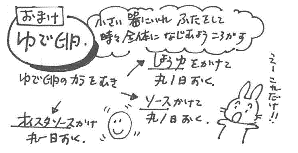 おまけ
ゆで卵.
小さい器にいれ ふたをして
時々全体に なじむよう ころがす
ゆで卵の カラをむき
しょうゆ をかけて
丸1日 おく.
ソース かけて
丸1日 おく.
オイスタソース かけ
丸一日 おく.
えーこれだけ!!